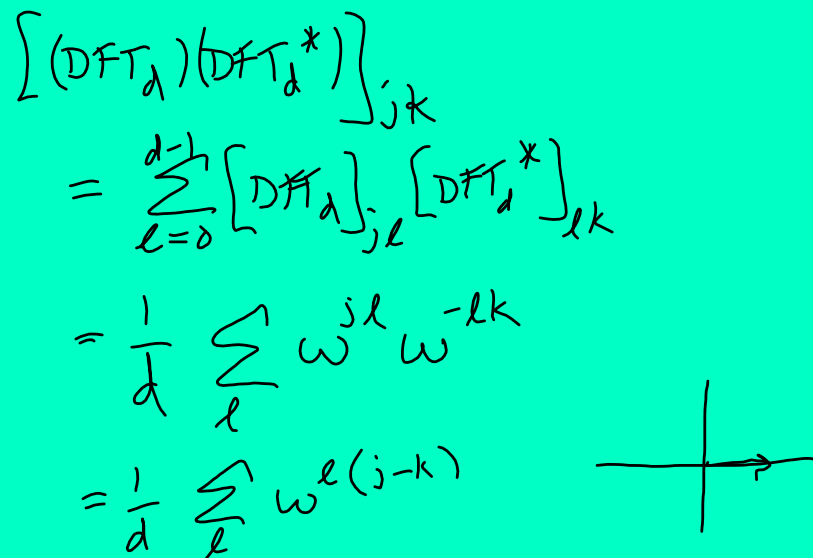 [(DFT_d)(DFT_d^*)]_{jk}
= \sum_{l=0}^{d-1} [DFT_d]_{jl} [DFT_d^*]_{lk}
= \frac{1}{d} \sum_l ω^{jl} ω^{-lk}
= \frac{1}{d} \sum_l ω^{l(j-k)}